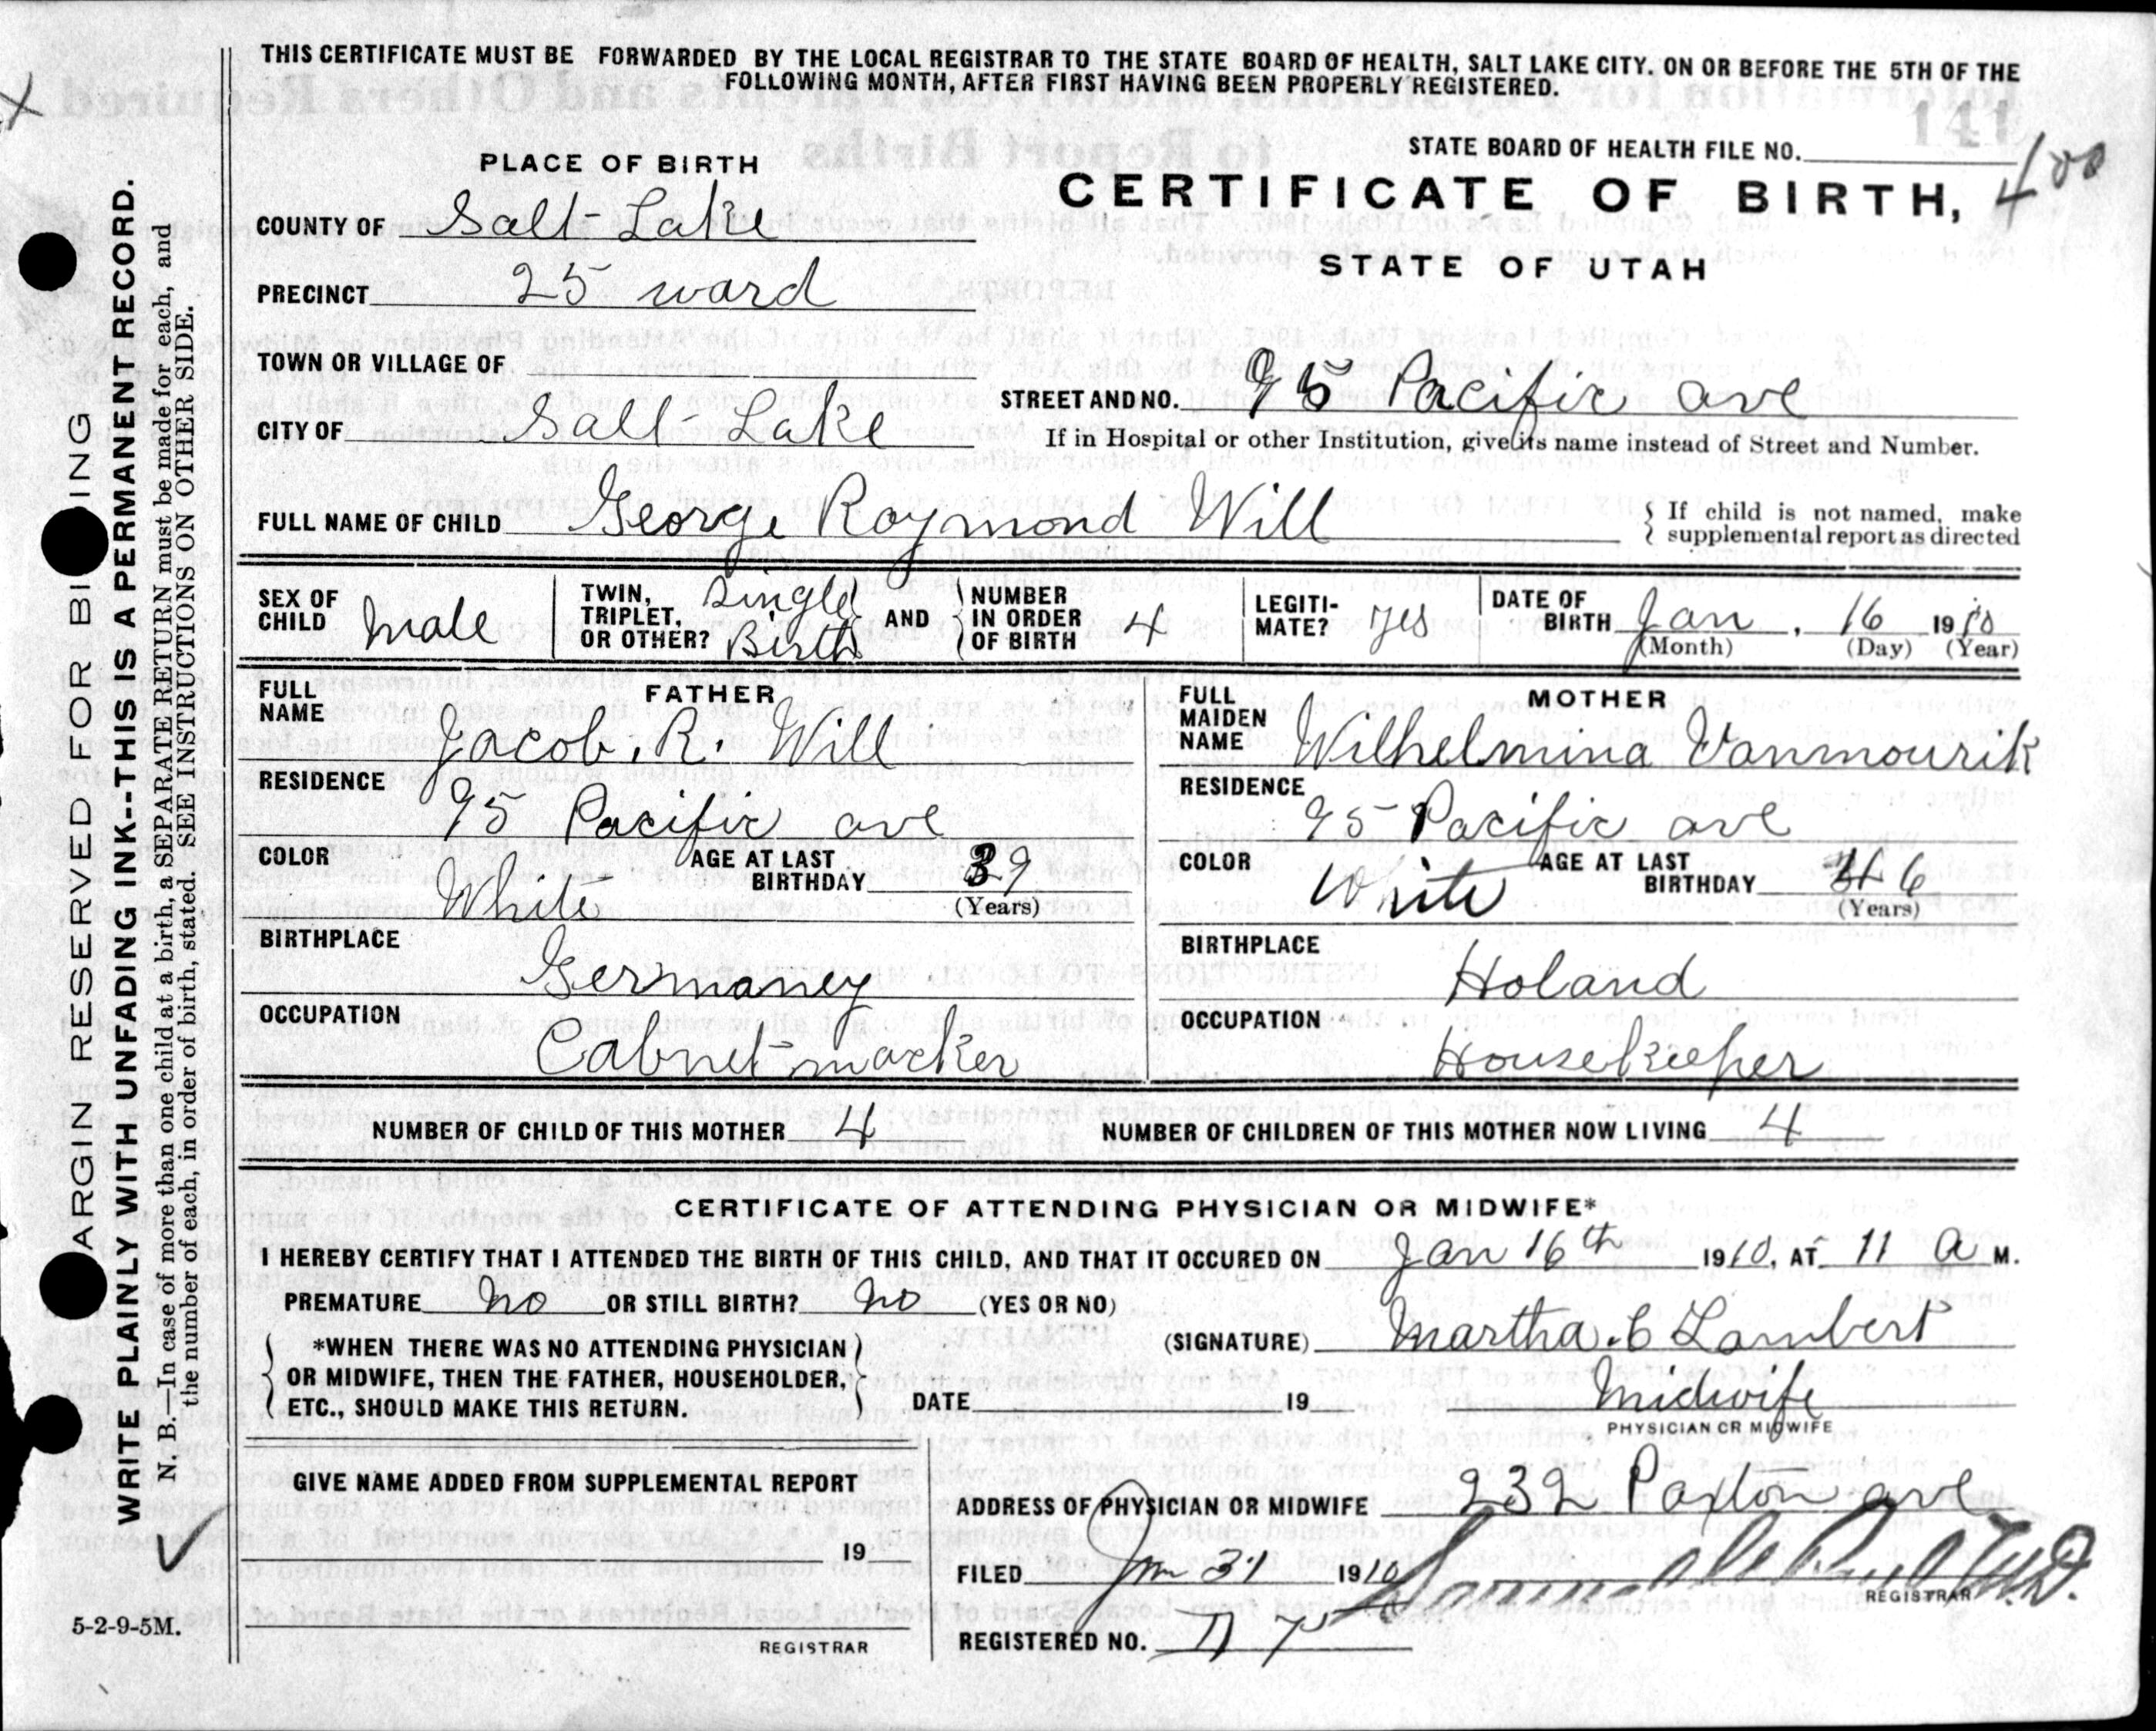 THIS CERTIFICATE MUST BE FORWARDED BY THE LOCAL REGISTRAR TO THE STATE BOARD OF HEALTH, SALT LAKE CITY. ON OR BEFORE THE 5TH OF THE
FOLLOWING MONTH, AFTER FIRST HAVING BEEN PROPERLY REGISTERED.
PLACE OF BIRTH
STATE BOARD OF HEALTH FILE NO.
400
CERTIFICATE OF BIRTH,
STATE OF UTAH
COUNTY OF Salt Lake
PRECINCT 25 ward
TOWN OR VILLAGE OF
STREET AND NO. 95 Pacific ave
CITY OF Salt Lake
If in Hospital or other Institution, give its name instead of Street and Number.
FULL NAME OF CHILD George Raymond Will
{ If child is not named, make
supplemental report as directed
SEX OF CHILD Male
TWIN, TRIPLET, OR OTHER? Single Birth
AND { NUMBER IN ORDER OF BIRTH 4
LEGITI-MATE? yes
DATE OF BIRTH Jan, 16 1910
(Month) (Day) (Year)
FATHER
FULL NAME Jacob. R. Will
RESIDENCE 95 Pacific ave
COLOR White
AGE AT LAST BIRTHDAY 39
(Years)
BIRTHPLACE
Germaney
OCCUPATION
Cabnet macker
MOTHER
FULL MAIDEN NAME Wilhelmina Vanmourik
RESIDENCE 95 Pacific ave
COLOR White
AGE AT LAST BIRTHDAY 6
(Years)
BIRTHPLACE
Holand
OCCUPATION
Housekeeper
NUMBER OF CHILD OF THIS MOTHER 4
NUMBER OF CHILDREN OF THIS MOTHER NOW LIVING 4
CERTIFICATE OF ATTENDING PHYSICIAN OR MIDWIFE*
I HEREBY CERTIFY THAT I ATTENDED THE BIRTH OF THIS CHILD, AND THAT IT OCCURED ON Jan 16th 1910, AT 11 A M.
PREMATURE no OR STILL BIRTH? no (YES OR NO)
(SIGNATURE) Martha. C Lambert
*WHEN THERE WAS NO ATTENDING PHYSICIAN
OR MIDWIFE, THEN THE FATHER, HOUSEHOLDER,
ETC., SHOULD MAKE THIS RETURN.
DATE 19
Midwife
PHYSICIAN OR MIDWIFE
GIVE NAME ADDED FROM SUPPLEMENTAL REPORT
19
REGISTRAR
ADDRESS OF PHYSICIAN OR MIDWIFE 232 Paxton ave
FILED Jan 31 1910
M.D.
REGISTRAR
REGISTERED NO.
5-2-9-5M.
ARGIN RESERVED FOR BI ING
WRITE PLAINLY WITH UNFADING INK--THIS IS A PERMANENT RECORD.
N. B.—In case of more than one child at a birth, a SEPARATE RETURN must be made for each, and
the number of each, in order of birth, stated. SEE INSTRUCTIONS ON OTHER SIDE.